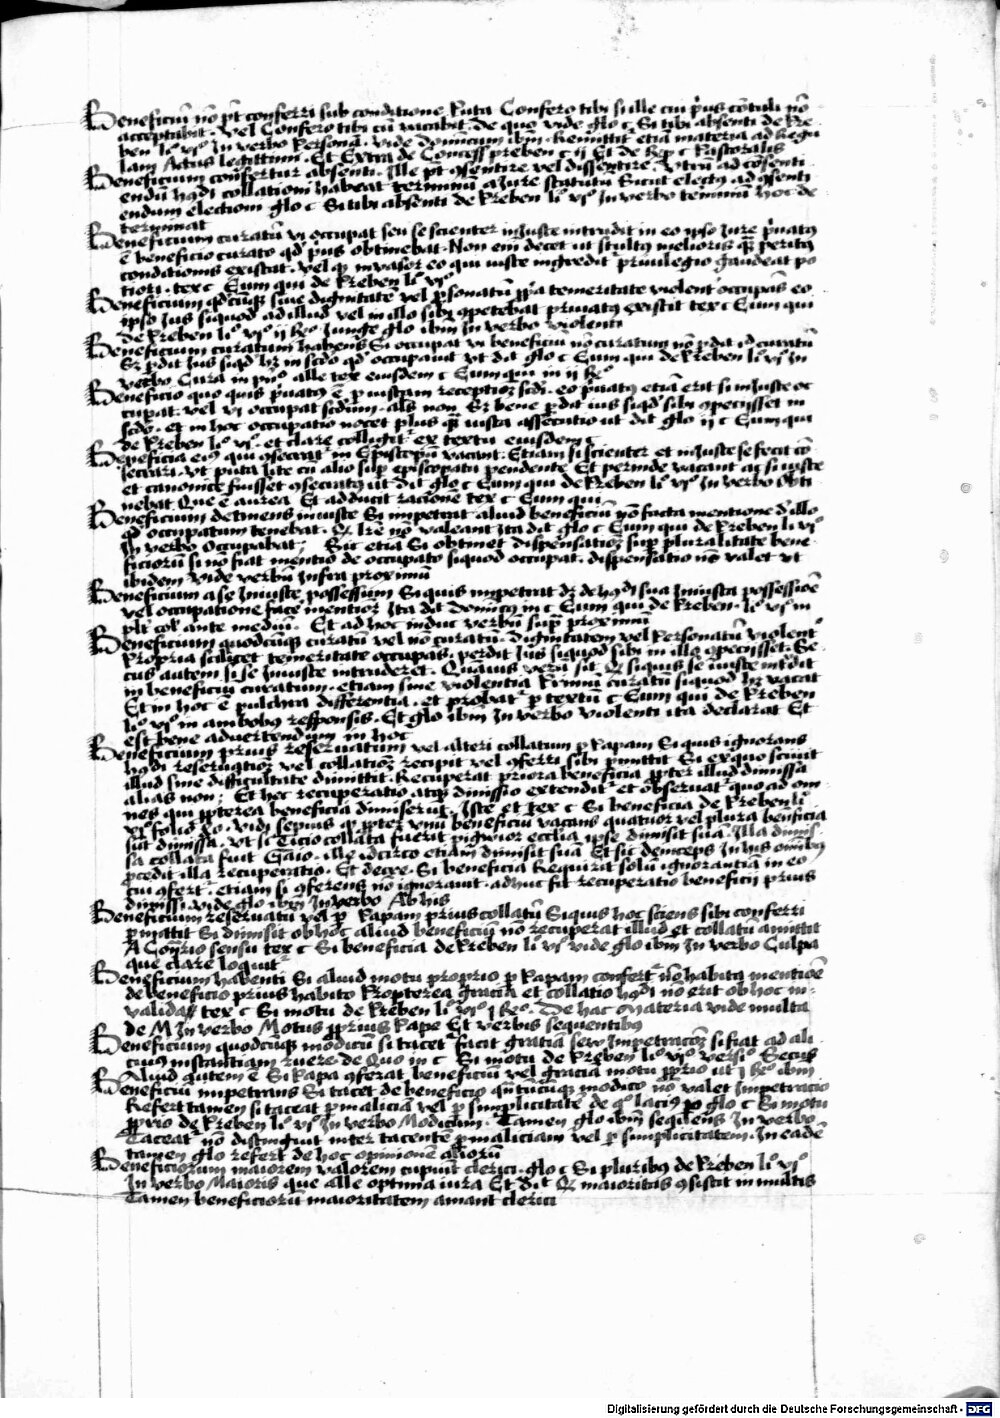 Beneficiū nō pt̄ conferri sub conditione Puta Confero tibi si ille cui p̄us cōtuli nō
acceptabit. Vel Confero tibi cū vacabit. De quo vide glo c Si tibi absenti de Pre
ben li° vj° In verbo Persona. Vide dominicum ibm̄. Remittit etiā materia ad Regu
lam Actus legittimi. Et Extra de Concess preben c ij Et de c Pastoralis
Beneficium confertur absenti. Ille pt ꝯsentire vel dissentire. Vtrū ad cōsenti
endū hmōi collationi habeat terminū a Jure statutū Sicut electꝰ ad ꝯsenti
endum electioni glo c Si tibi absēti de Preben li° vj° In verbo terminū hoc de
terminat
Beneficium curatū vi occupat seu se scienter iniuste intrudit in eo ipso Jure p̄uatꝰ
ē beneficio curato qd p̄us obtinebat. Non em̄ decet ut stultꝰ melioris qͣ peritꝰ
conditionis existat. Vel qꝫ invasor eo qui iuste ingredit privilegio gaudeat po
tiori. tex c Eum qui de Preben li° vj°
Beneficium qdcūqꝫ sine dignitate vel psonatū ppa temeritate violent occupās eo
ipso Jus siquod ad illud vel in illo sibi ꝯpetebat privatꝰ existit tex c Eum qui
de Preben li° vj° ij Re° Junge glo ibm̄ In verbo violenti
Beneficium curatum habens Si occupat vi beneficiū nō curatum nō pdit id curatū
Sꝫ pdit Jus siqd hꝫ in scdo qd occupavit vt dit glo c Eum qui de Preben li° vj° In
verbo Cura in pn° alle tex eiusdem c Eum qui in ij Re°
Beneficio quo quis p̄uatꝰ ē p iniustam receptioꝫ scdi. eo p̄uatꝰ etiā erit si iniuste oc
cupat. vel vi occupat scdum. als non Sꝫ bene pdit ius siqd sibi ꝯpecijsset in
scdo. et in hoc occupatio nocet plus qͣ iusta assecutio ut dit glo ij c Eum qui
de Preben li° vj°. et clare colligit ex textu eiusdem c
Beneficia eiꝰ qui ꝯsecrat in Episcopū vacant. Etiam si scienter et iniuste se fecit cō
secrari. vt puta lite cū alio sup episcopatu pendente Et perinde vacant ac si iuste
et canonice fuisset ꝯsecratꝰ ut dit glo c Eum qui de Preben li° vj° In verbo Obti
nebat Que ē aurea Et adducit racione tex c Eum qui
Beneficium detinens iniuste Si impetrat aliud beneficiū nō facta mentione d illo
qd occupatum tenebat. Qꝫ lre nō valeant Ita dit glo c Eum qui de Preben li° vj°
In verbo Occupabat. Sic etiā Si obtinet dispensatioꝫ sup pluralitate bene
ficiorū si nō fiat mentio de occupato siquod occupat. dispensatio nō valet vt
ibidem Vide verbū Infra proximū
Beneficium a se Iniuste possessum Si quis impetrat dꝫ de hmōi sua Iniusta possessiōe
vel occupatione facē mentioꝫ Ita dit Dominicꝰ in c Eum qui de Preben. li° vj° in
plt col ante mediū. Et ad hoc induc verbū sup proximū
Beneficium quodcūqꝫ curatū vel nō curatū. Dignitatem vel Personatū violent
Propria scilicet temeritate occupās. perdit Jus siquod sibi in illo ꝯpecijsset. Se
cus autem si se Iniuste intruderet. Quāvis verū sit Qꝫ siquis se iniuste int̄dit
in beneficiū curatum. etiam sine violentia Primū curatū siquod hꝫ vacat
Et in hoc ē pulchra differentia. et probat p textū c Eum qui de Preben
li° vj° in ambobꝰ responsis. Et glo ibm̄ In verbo Violenti ita declarat Et
est bene advertendum in hoc
Beneficium prius reservatum vel alteri collatum p Papam Si quis ignorans
hmōi reservatioꝫ vel collatioꝫ recipit vel ꝯferri sibi pmittit Si exquo sciuit
illud sine difficultate dimittit. Recuperat priora beneficia ppter illud dimissa
alias non. Et hec recuperatio atqꝫ dimissio extendit et observat quo ad om
nes qui ppterea beneficia dimiserūt. Iste et tex c Si beneficia de Preben li°
vj° folio Vidi sepius qꝫ ppter vnū beneficiū vacans quatuor vel plura bēnficia
sūt dimissa. vt si Ticio collata fuerit pinguior ecclīa ipse dimisit suā. Illa dimis
sa collata fuit Gaio. ille idcirco etiam dimisit suā Et sic deinceps In his omībꝰ
pcedit illa recuperatio. Et c Si beneficia Requirit solū ignorantiā in eo
cui ꝯfert. etiam si ꝯferens nō ignoravit. adhuc fit recuperatio beneficii prius
dimissi. vide glo ibm̄ In verbo Ab his
Beneficium reservatū vel p Papam prius collatū Siquis hoc sciens sibi conferri
pmittit Si dimisit ob hoc aliud beneficiū nō recuperat illud et collatū amittit
A Contrario sensu tex c Si beneficia de Preben li° vj° vide glo ibm̄ In verbo Culpa
que clare loquit
Beneficium habenti Si aliud motu proprio p Papam confert nō habitꝰ mentiōe
de beneficio prius habito Propterea gracia et collatio hmōi nō erit ob hoc in
valida tex c Si motu de Preben li° vj° j Re°. De hac Materia vide multa
de M In verbo Motus pprius Pape Et verbis sequentibꝰ
Beneficium quodcūqꝫ modicū si tacet facit gratiā seu Impetracōꝫ si fiat ad ali
cuiꝰ instantiam ruere. de Quo in c Si motu de Preben li° vj° versi° Secus
Aliud autem ē Si Papa ꝯferat beneficiū vel gracia motu pprio ut j Re° ibm̄
Beneficiū impetrans Si tacet de beneficio qn̄tūcūqꝫ modico nō valet Impetracio
Refert tamen si taceat p maliciā vel p simplicitatē de qo lacius p glo c Si motu
pprio de Preben li° vj° In verbo Modicum. Tamen glo ibm̄ sequens In verbo
Taceat nō distinguit inter tacente p maliciam vel p simplicitatem. In eadē
tamen glo refert de hoc opinione aliorū
Beneficiorum maiorem valorem cupiūt clerici. glo c Si pluribꝰ de Preben li° vj°
In verbo Maioris que alle optima iura Et dit Qꝫ maioritas ꝯsistit in multis
Tamen beneficiorū maioritatem amant clerici
Digitalisierung gefördert durch die Deutsche Forschungsgemeinschaft - DFG